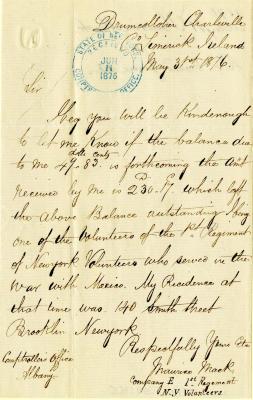 Drumcollober Charleville
Co Limerick Ireland
May 31st 1876.
STATE OF NEW
RECEIVED
JUN
1876
COMPTROLLER'S OFFICE
Sir
I beg you will be kind enough
to let me know if the balance due
to me 47.83 cents is forthcoming the Amt
received by me is 230.17 which left
the above Balance outstanding I being
one of the Volunteers of the 1st Regiment
of Newyork Volunteers who served in the
War with Mexico. My Residence at
that time was 140 Smith Street
Brooklin Newyork
Respectfully Yours
Maurice Mack
Company E 1st Regiment
N.Y Volunteers
Comptrollers Office
Albany